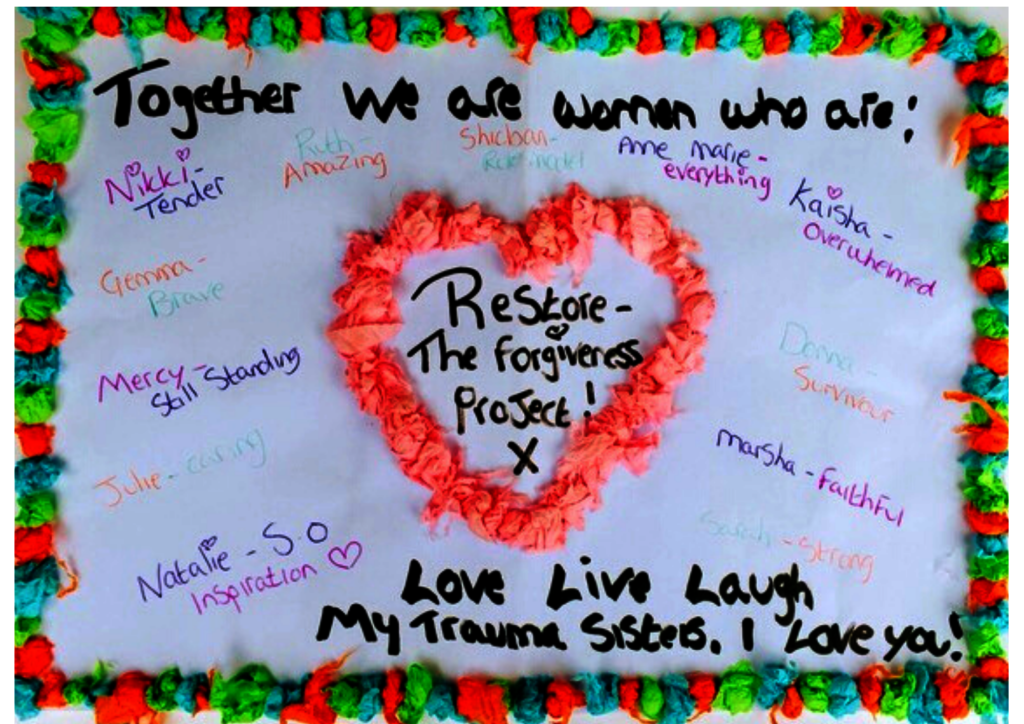 Together we are women who are:
Nikki -
Tender
Ruth -
Amazing
Shioban -
Role model
Anne marie -
everything
Kaisha -
Overwhelmed
Gemma -
Brave
Restore -
The forgiveness
Project!
x
Mercy -
Still Standing
Donna -
Survivour
Julie - caring
marsha - Faithful
Natalie - S.O
Inspiration
Sarah - Strong
Love Live Laugh
My Trauma Sisters. I Love you!